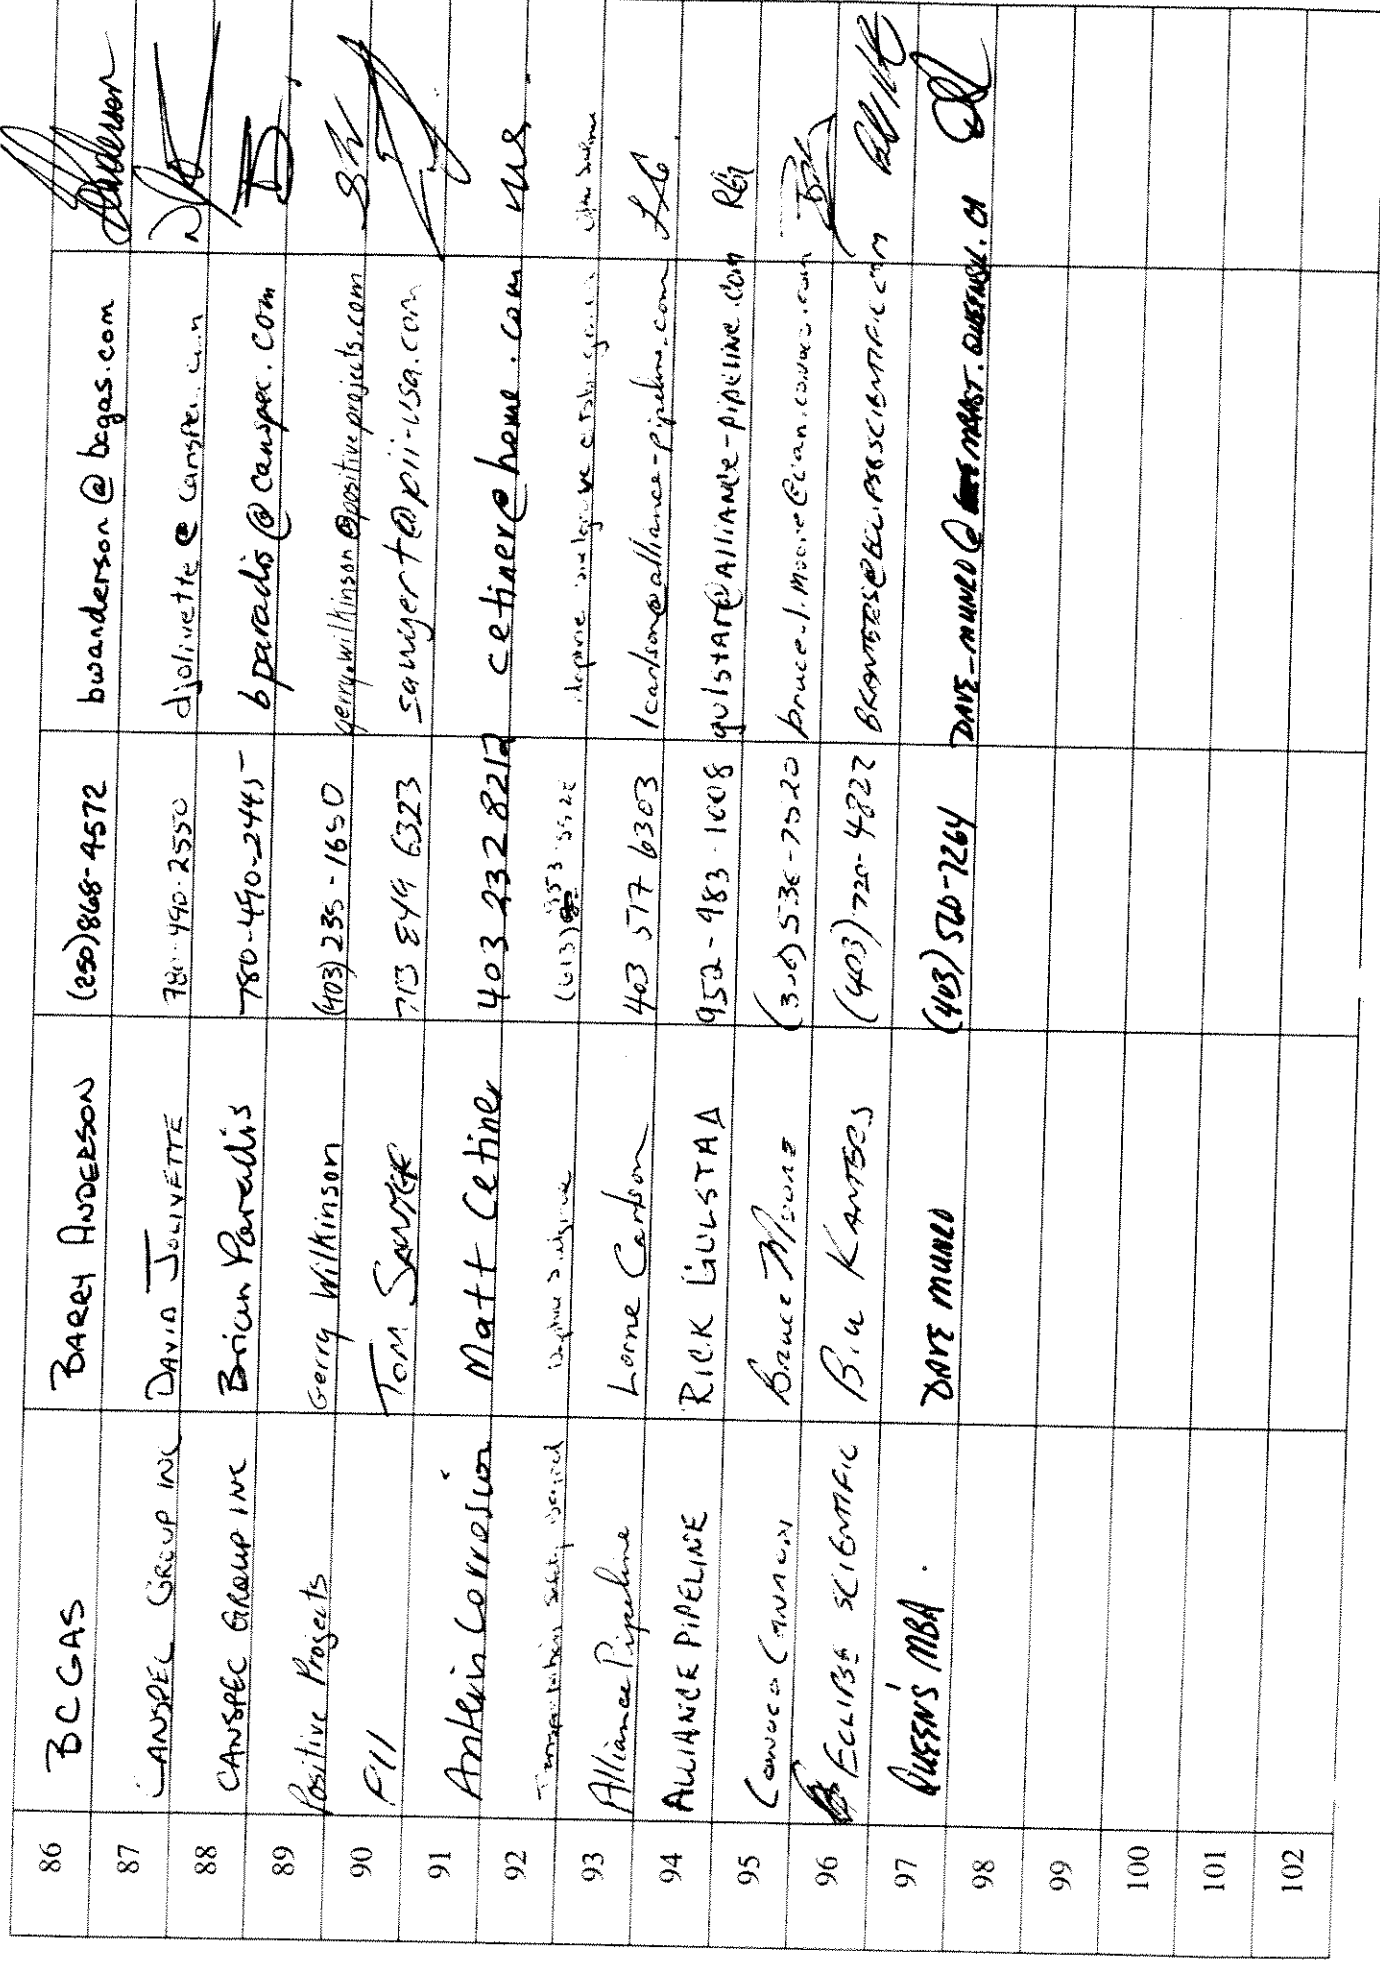 86 BC GAS BARRY ANDERSON (250) 868-4572 bwanderson@bcgas.com
87 CANSPEC GROUP INC DAVID JOLIVETTE 780-490-2550 djolivette@canspec.com
88 CANSPEC GROUP INC Brian Paradis 780-490-2445 bparadis@canspec.com
89 Positive Projects Gerry Wilkinson (403) 235-1650 gerry.wilkinson@positiveprojects.com
90 PII TOM SANGER 713 849 6323 sangert@pii-usa.com
91 Corrosion Matt Cetiner 403 232 8212 cetiner@home.com
92 Transportation Safety (613)
93 Alliance Pipeline Lorne Carlson 403 517 6303 lcarlson@alliance-pipeline.com LC
94 ALLIANCE PIPELINE RICK GULSTAD 952-983-1008 gulstar@ALLIANCE-pipeline.com RG
95 CONOCO CANADA BRUCE MOORE 536-7520
96 ECLIPSE SCIENTIFIC BILL KANTERS (403) 720-4822
97 QUEEN'S MBA. DAVE MUNRO (403) 560-7264 DAVE-MUNRO@MBAST.QUEENSU.CA
98
99
100
101
102